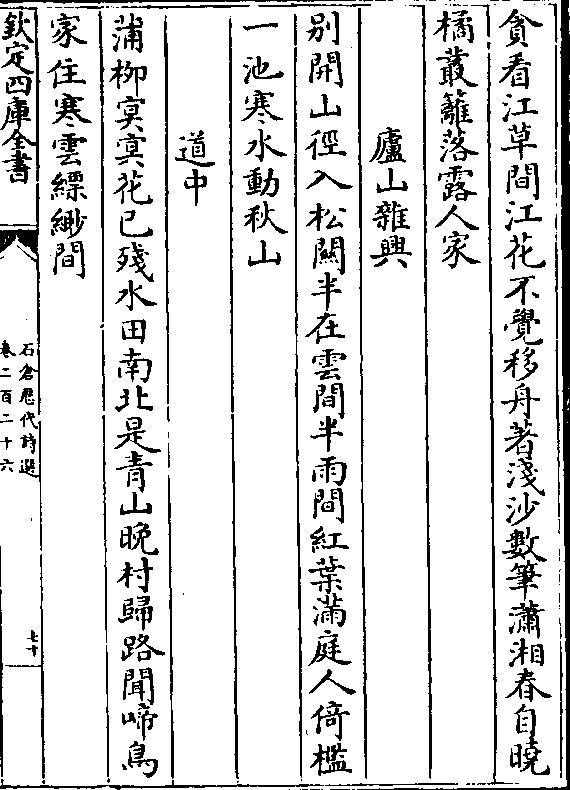 貪看江草間江花不覺移舟著淺沙數筆瀟湘春自曉
橘叢籬落露人家
廬山雜興
別開山徑入松關半在雲間半雨間紅葉滿庭人倚檻
一池寒水動秋山
道中
蒲柳冥冥花已殘水田南北是青山晚村歸路聞啼鳥
家住寒雲縹緲間
欽定四庫全書
石倉歷代詩選
卷二百二十六
七十